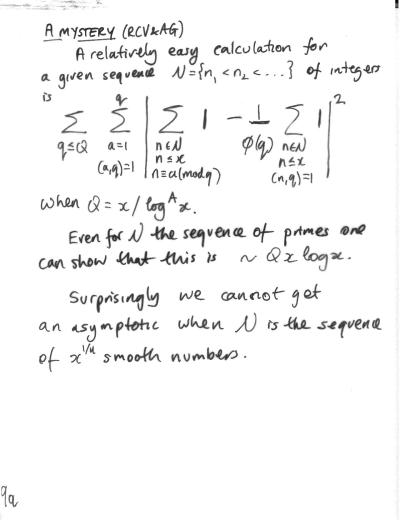 A MYSTERY (RCV&AG)
A relatively easy calculation for
a given sequence N={n₁<n₂<...} of integers
is
∑_{q≤Q} ∑_{a=1, (a,q)=1}^{q} | ∑_{n∈N, n≤x, n≡a(mod q)} 1 − 1/φ(q) ∑_{n∈N, n≤x, (n,q)=1} 1 |²
when Q = x/log^A x.
Even for N the sequence of primes one
can show that this is ~ Qx log x.
Surprisingly we cannot get
an asymptotic when N is the sequence
of x^{1/u} smooth numbers.
9a